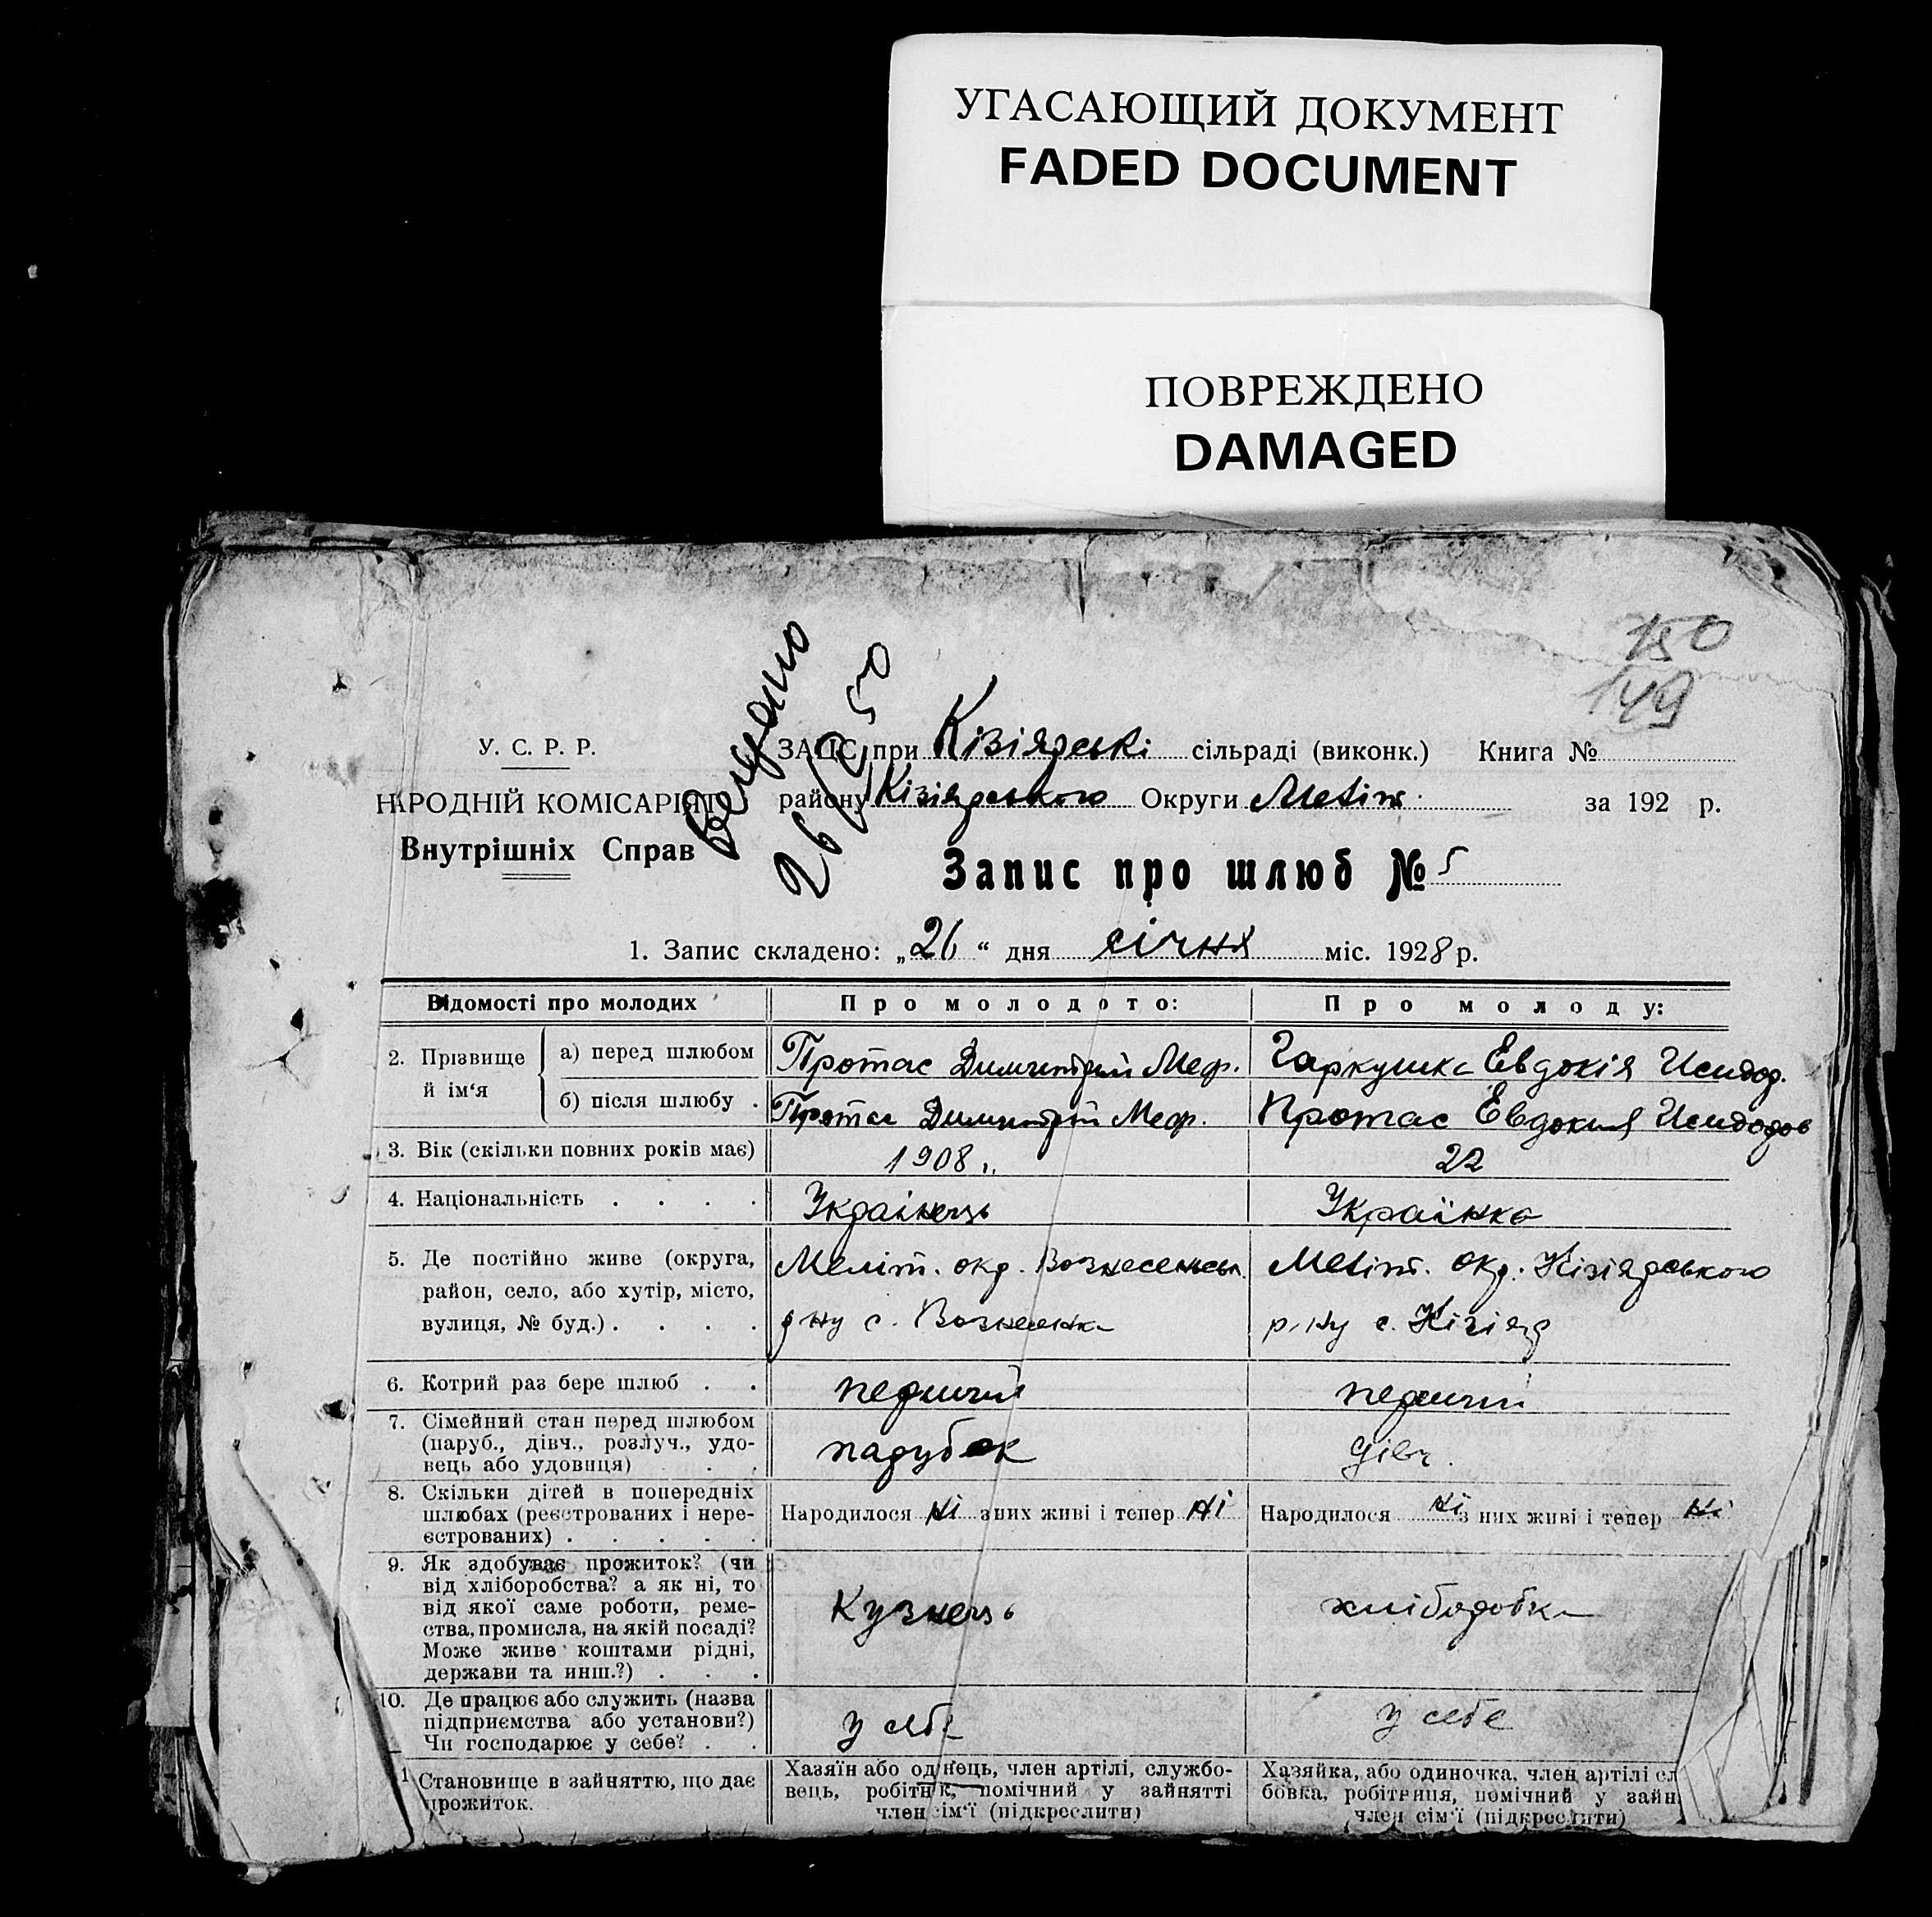 УГАСАЮЩИЙ ДОКУМЕНТ
FADED DOCUMENT
ПОВРЕЖДЕНО
DAMAGED
150
149
Видано
26/ 50
У. С. Р. Р.
НАРОДНІЙ КОМІСАРІЯТ
Внутрішніх Справ
ЗАПИС при Кізіярські сільраді (виконк.) Книга №
району Кізіярського Округи Меліт. за 192 р.
Запис про шлюб № 5
1. Запис складено: „26“ дня січня міс. 1928 р.
Відомості про молодих
Про молодого:
Про молоду:
2. Прізвище й ім‘я
а) перед шлюбом
Протас Димитрий Меф.
Гаркушка Евдокія Исидор.
б) після шлюбу .
Протас Димитрій Меф.
Протас Евдокия Исидоров
3. Вік (скільки повних років має)
1908
22
4. Національність . . . .
Українець
Українка
5. Де постійно живе (округа,
район, село, або хутір, місто,
вулиця, № буд.) . . . .
Меліт. окр. Вознесенськ.
р ну с. Вознесенка
Меліт. окр. Кізіярського
р-ну с. Кізіяр
6. Котрий раз бере шлюб . .
перший
перший
7. Сімейний стан перед шлюбом
(паруб., дівч., розлуч., удо-
вець або удовиця) . . .
парубок
дівч.
8. Скільки дітей в попередніх
шлюбах (реєстрованих і нере-
єстрованих) . . . . .
Народилося ні з них живі і тепер ні
Народилося ні з них живі і тепер ні
9. Як здобуває прожиток? (чи
від хліборобства? а як ні, то
від якої саме роботи, реме-
ства, промисла, на якій посаді?
Може живе коштами рідні,
держави та инш.?) . . .
Кузнець
хліборобка
10. Де працює або служить (назва
підприємства або установи?)
Чи господарює у себе? . .
у себе
у себе
1 Становище в зайняттю, що дає
прожиток.
Хазяїн або одинець, член артілі, службо-
вець, робітник, помічний у зайнятті
член сім‘ї (підкреслити)
Хазяйка, або одиночка, член артілі сл
бовка, робітниця, помічний у зайн
член сім‘ї (підкреслити)